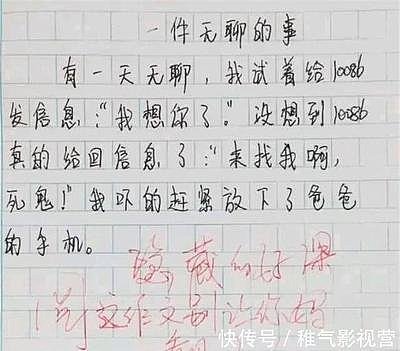 一件无聊的事
有一天无聊，我试着给10086
发信息："我想你了。"没想到10086
真的给回信息了："来找我啊，
死鬼！"我吓的赶紧放下了爸爸
的手机。
隐藏的好深
这作文别让你妈
看见
快传号/稚气影视营